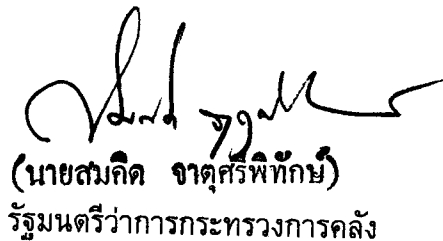 (นายสมคิด จาตุศรีพิทักษ์)
รัฐมนตรีว่าการกระทรวงการคลัง